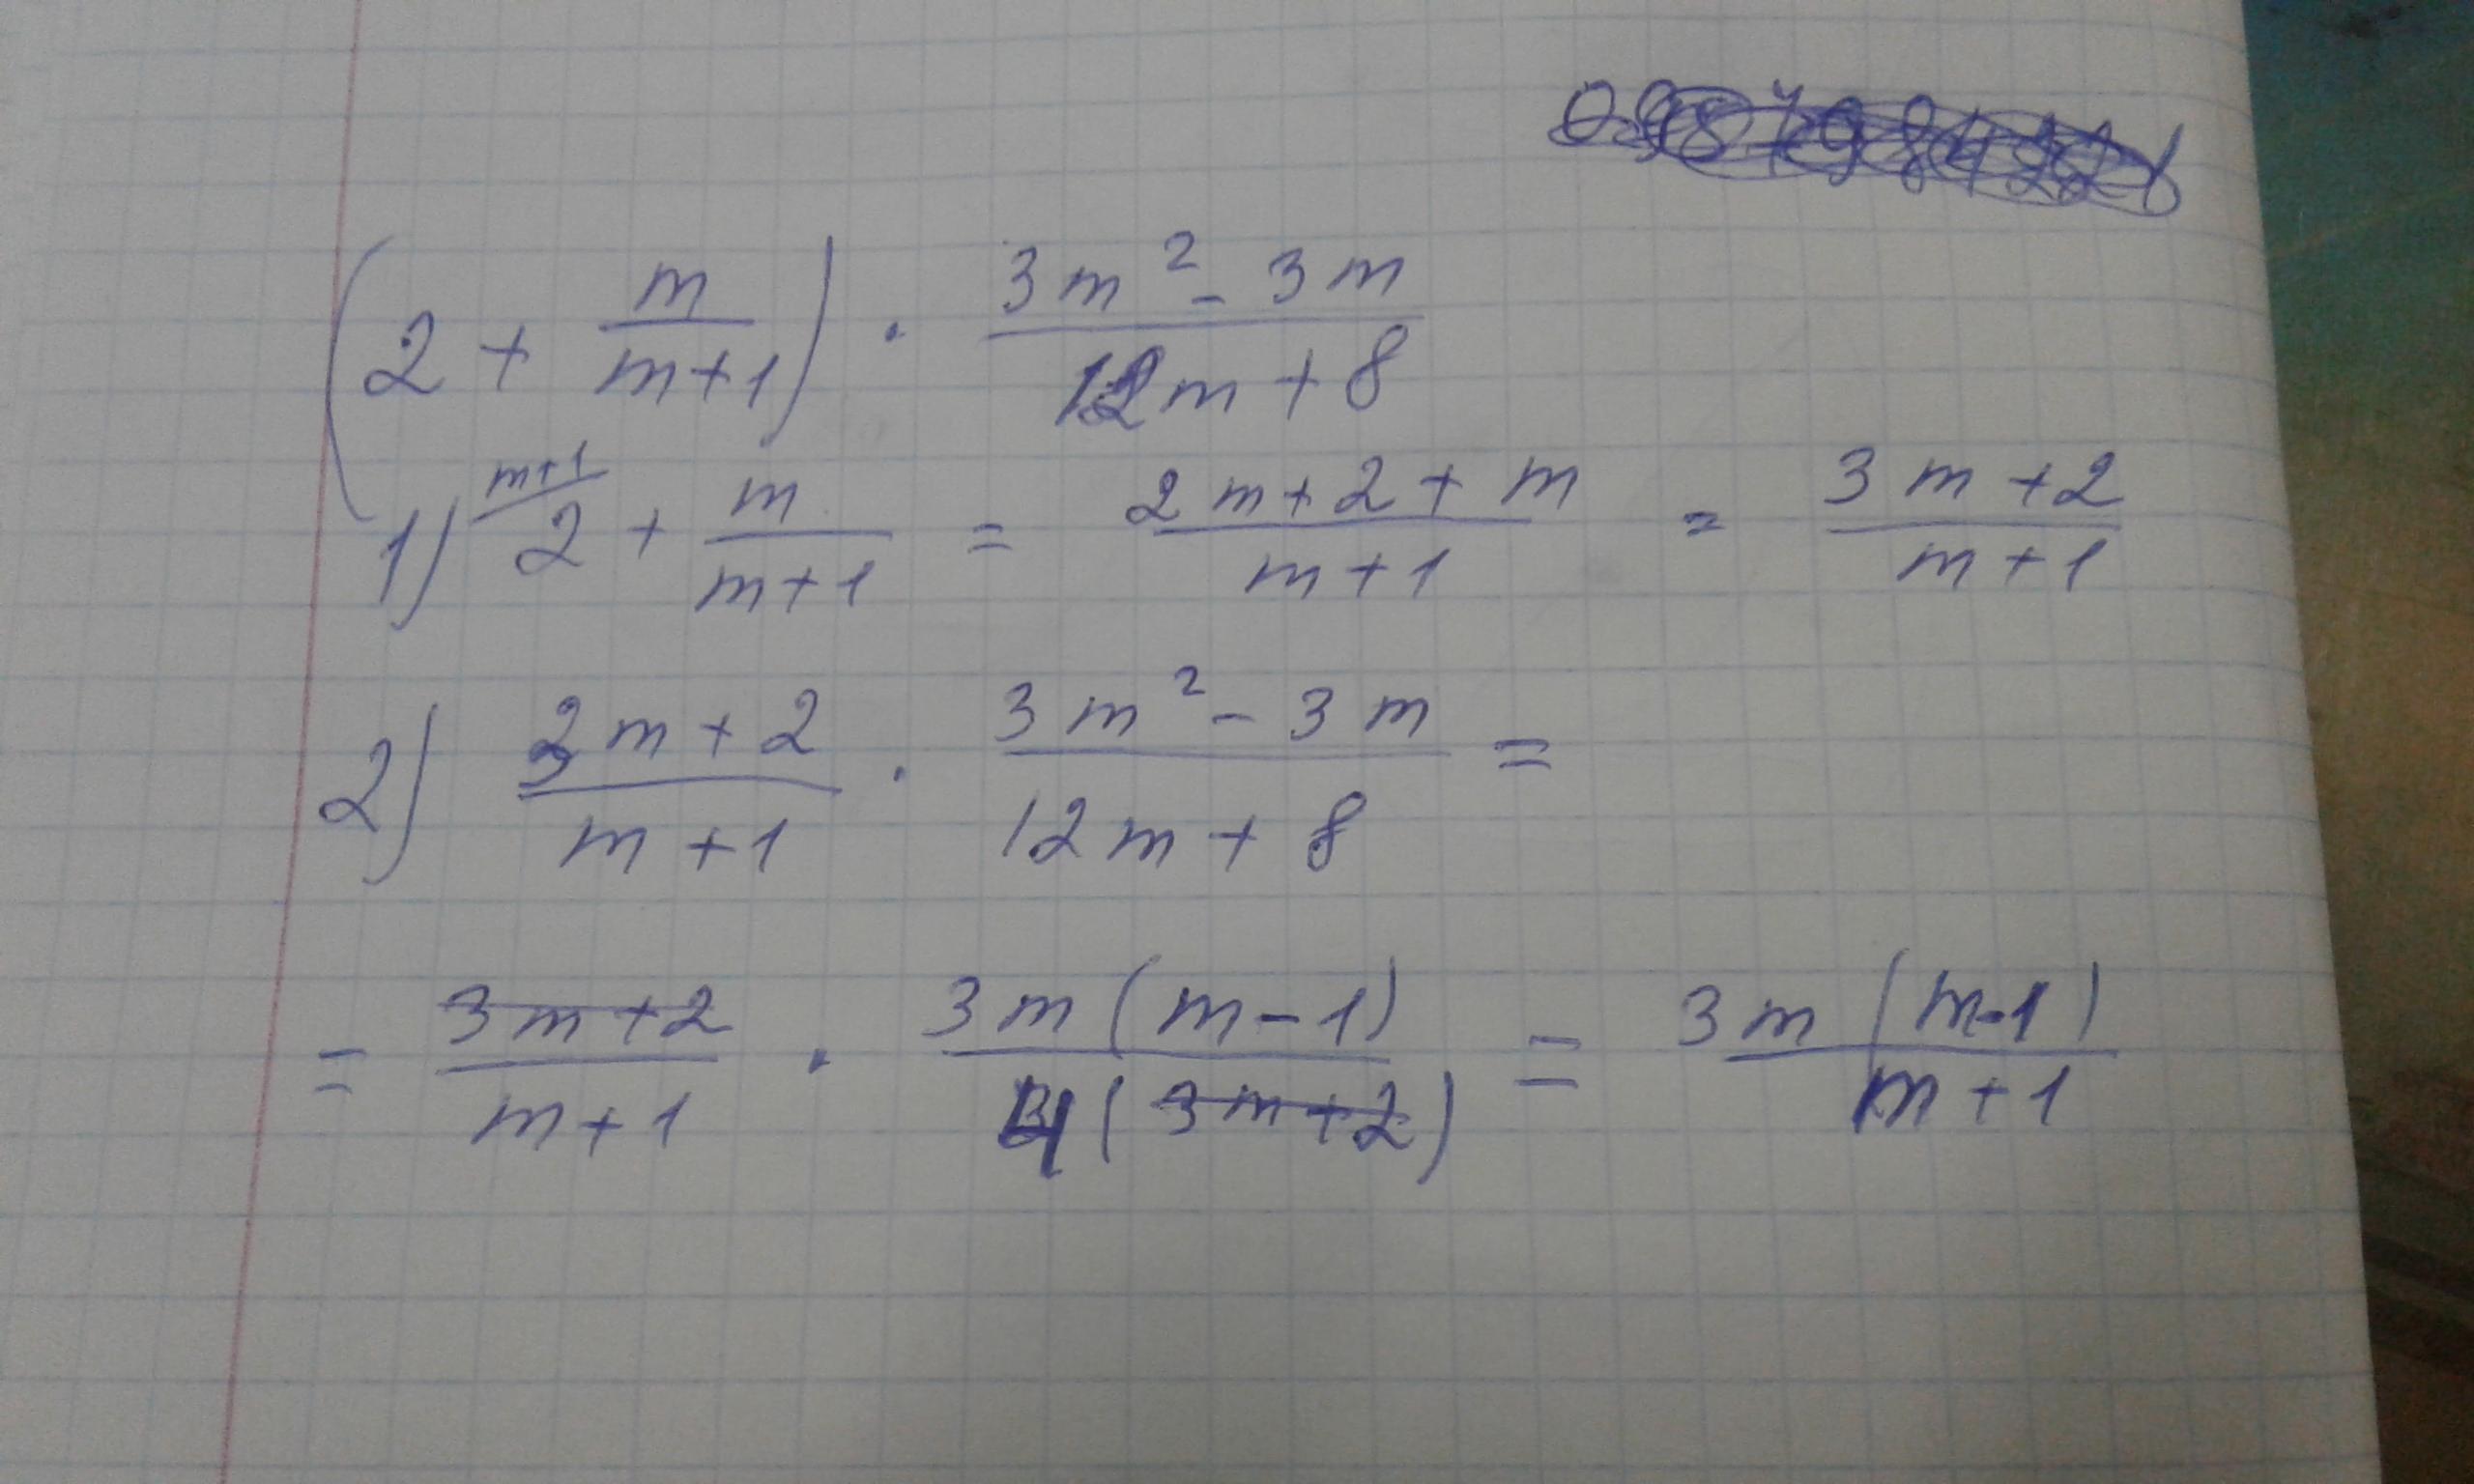 (2 + m/(m+1)) · (3m² - 3m)/(12m + 8)
1) 2^(m+1) + m/(m+1) = (2m + 2 + m)/(m+1) = (3m + 2)/(m+1)
2) (3m + 2)/(m+1) · (3m² - 3m)/(12m + 8) =
= (3m+2)/(m+1) · 3m(m-1)/4(3m+2) = 3m(m-1)/(m+1)